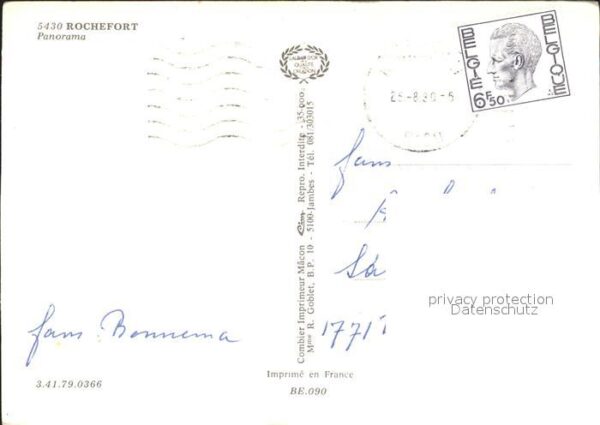 5430 ROCHEFORT
Panorama
BELGIE
BELGIQUE
6F50
Combier Imprimeur Mâcon Cim Repro. Interdite - 35-000
Mme R. Goblet, B.P. 10 - 5100-Jambes - Tél. 081/303015
fans Bonnema
3.41.79.0366
fans
privacy protection
Datenschutz
Imprimé en France
BE.090